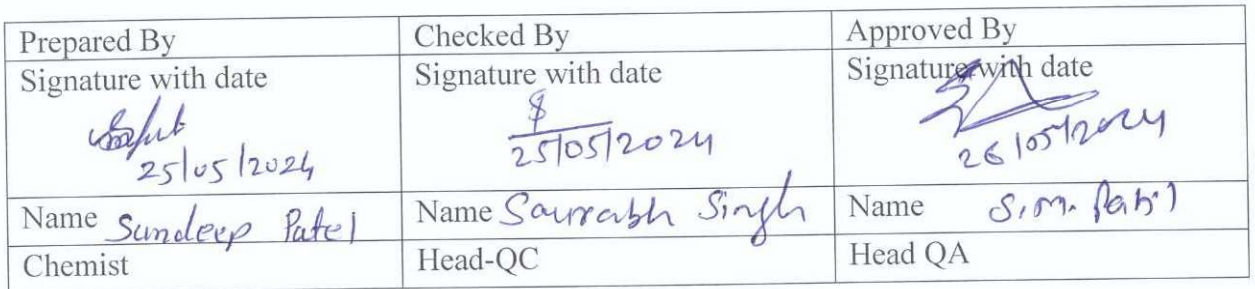 Prepared By Checked By Approved By
Signature with date Signature with date Signature with date
25/05/2024 25/05/2024 26/05/2024
Name Sundeep Patel Name Saurabh Singh Name S.M. Patil
Chemist Head-QC Head QA